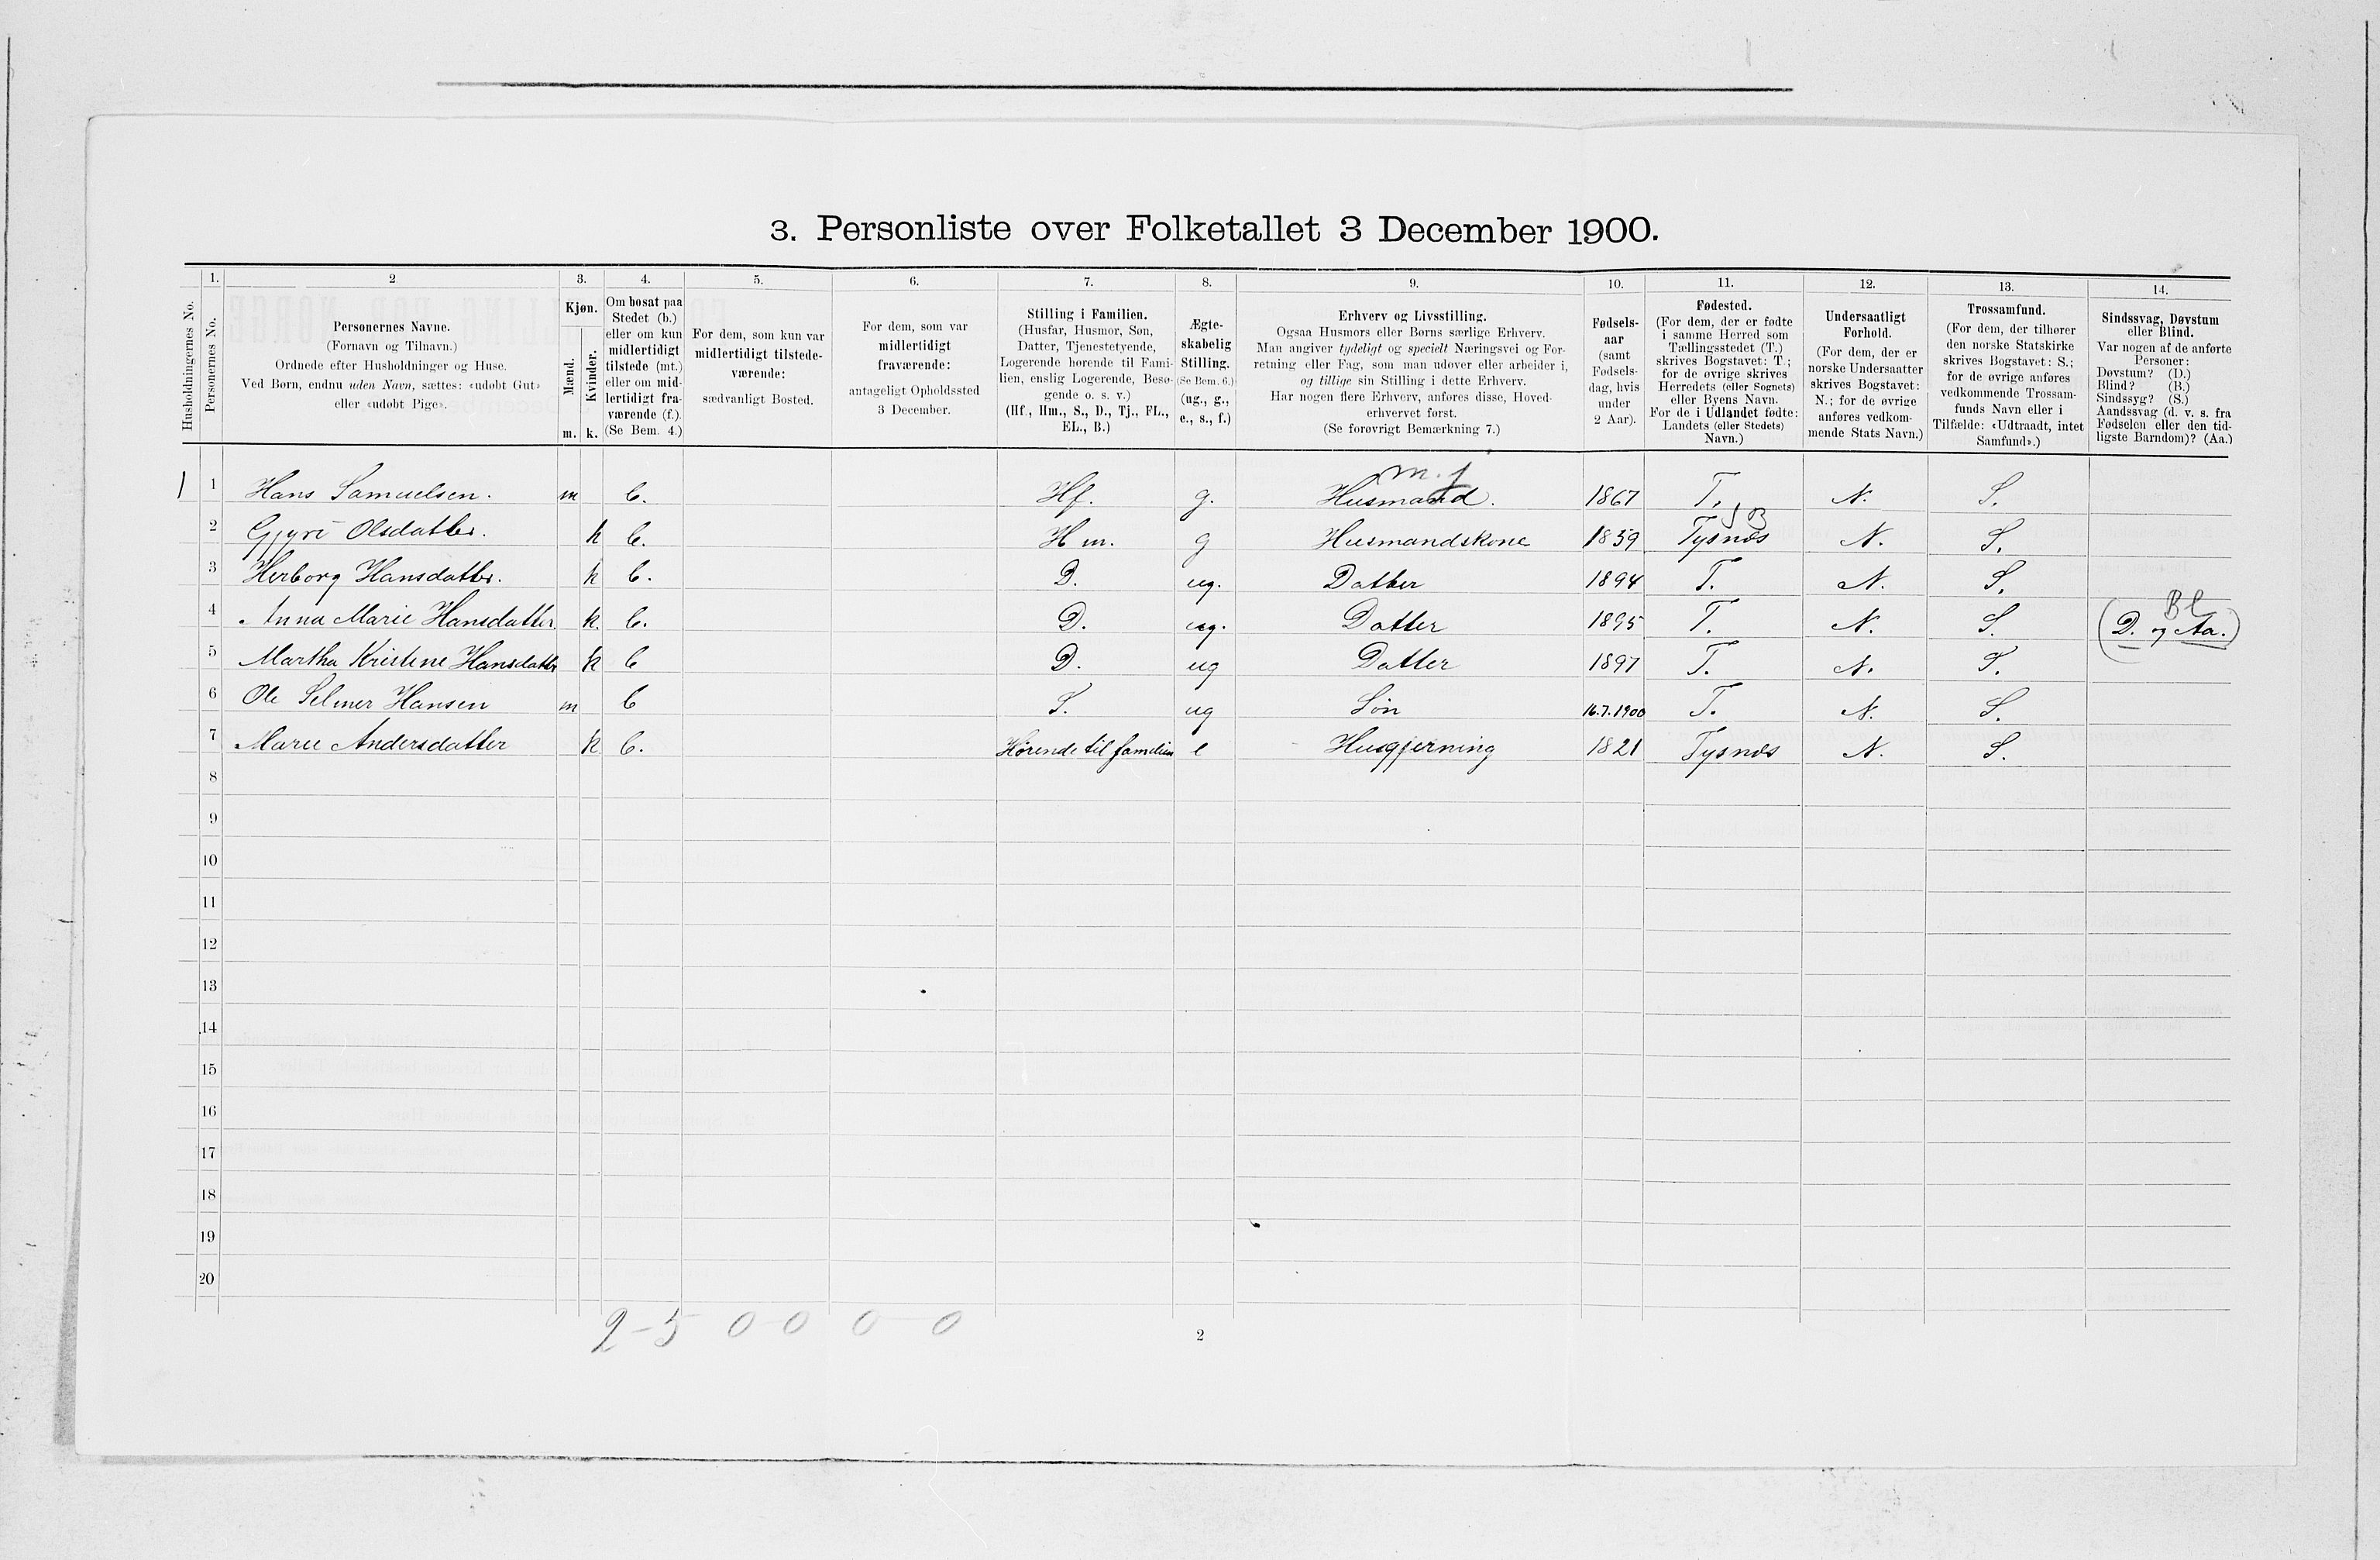 3. Personliste over Folketallet 3 December 1900.
Husholdningernes No.
1.
Personernes No.
2
Personernes Navne.
(Fornavn og Tilnavn.)
Ordnede efter Husholdninger og Huse.
Ved Børn, endnu uden Navn, sættes: «udøbt Gut»
eller «udøbt Pige».
3.
Kjøn.
Mænd.
Kvinder.
m. k.
4.
Om bosat paa
Stedet (b.)
eller om kun
midlertidigt
tilstede (mt.)
eller om mid-
lertidigt fra-
værende (f.).
(Se Bem. 4.)
5.
For dem, som kun var
midlertidigt tilstede-
værende:
sædvanligt Bosted.
6.
For dem, som var
midlertidigt
fraværende:
antageligt Opholdssted
3 December.
7.
Stilling i Familien.
(Husfar, Husmor, Søn,
Datter, Tjenestetyende,
Logerende hørende til Fami-
lien, enslig Logerende, Besø-
gende o. s. v.)
(Hf., Hm., S., D., Tj., FL.,
EL., B.)
8.
Ægte-
skabelig
Stilling.
(Se Bem. 6.)
(ug., g.,
e., s., f.)
9.
Erhverv og Livsstilling.
Ogsaa Husmors eller Børns særlige Erhverv.
Man angiver tydeligt og specielt Næringsvei og For-
retning eller Fag, som man udøver eller arbeider i,
og tillige sin Stilling i dette Erhverv.
Har nogen flere Erhverv, anføres disse, Hoved-
erhvervet først.
(Se forøvrigt Bemærkning 7.)
10.
Fødsels-
aar
(samt
Fødsels-
dag, hvis
under
2 Aar).
11.
Fødested.
(For dem, der er fødte
i samme Herred som
Tællingsstedet (T.)
skrives Bogstavet: T.;
for de øvrige skrives
Herredets (eller Sognets)
eller Byens Navn.
For de i Udlandet fødte:
Landets (eller Stedets)
Navn.)
12.
Undersaatligt
Forhold.
(For dem, der er
norske Undersaatter
skrives Bogstavet:
N.; for de øvrige
anføres vedkom-
mende Stats Navn.)
13.
Trossamfund.
(For dem, der tilhører
den norske Statskirke
skrives Bogstavet: S.;
for de øvrige anføres
vedkommende Trossam-
funds Navn eller i
Tilfælde: «Udtraadt, intet
Samfund».)
14.
Sindssvag, Døvstum
eller Blind.
Var nogen af de anførte
Personer:
Døvstum? (D.)
Blind? (B.)
Sindssyg? (S.)
Aandssvag (d. v. s. fra
Fødselen eller den tid-
ligste Barndom)? (Aa.)
m. j
1 1 Hans Samuelsen. m b. Hf. g. Husmand. 1867 T. N. S.
2 Gjyri Olsdatter. k b. Hm. g Husmandskone 1859 Tysnæs N. S.
3 Herborg Hansdatter. k b. D. ug. Datter 1894 T. N. S.
Bl
4 Anna Marie Hansdatter. k. b. D. ug. Datter 1895 T. N. S. (D. og Aa.)
5 Martha Kristine Hansdatter k b D. ug Datter 1897 T. N. S.
6 Ole Selmer Hansen m b S. ug Søn 16.7.1900 T. N. S.
7 Marie Andersdatter k b. Hørende til familien e Husgjerning 1821 Tysnæs N. S.
8
9
10
11
12
13
14
15
16
17
18
19
20
2-5 0-0 0-0
2